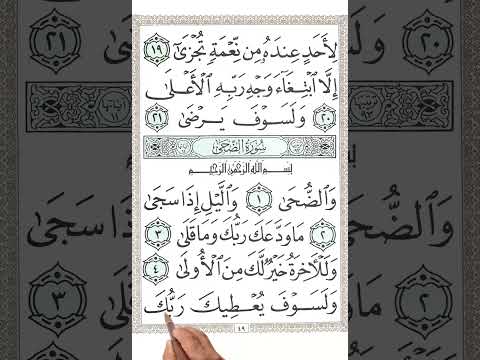 لِأَحَدٍ عِندَهُۥ مِن نِّعْمَةٍ تُجْزَىٰٓ ١٩
إِلَّا ٱبْتِغَآءَ وَجْهِ رَبِّهِ ٱلْأَعْلَىٰ
٢٠ وَلَسَوْفَ يَرْضَىٰ ٢١
سُورَةُ الضُّحَىٰ
بِسْمِ ٱللَّهِ ٱلرَّحْمَٰنِ ٱلرَّحِيمِ
وَٱلضُّحَىٰ ١ وَٱلَّيْلِ إِذَا سَجَىٰ
٢ مَا وَدَّعَكَ رَبُّكَ وَمَا قَلَىٰ ٣
وَلَلْأَخِرَةُ خَيْرٌ لَّكَ مِنَ ٱلْأُولَىٰ ٤
وَلَسَوْفَ يُعْطِيكَ رَبُّكَ
٤٩